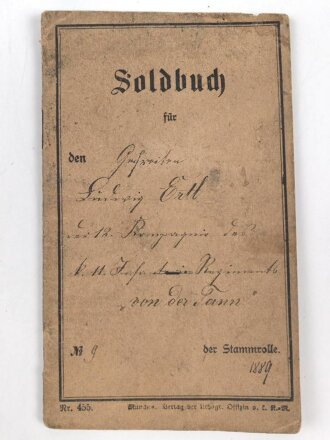 Soldbuch
für
den Gefreiten
Ludwig Ertl
der 12. Kompagnie des
k. 11. Inf. Regiments
"von der Tann"
№ 9 der Stammrolle.
1889
Nr. 455. München. Verlag der lithogr. Offizin d. L. K.-M.